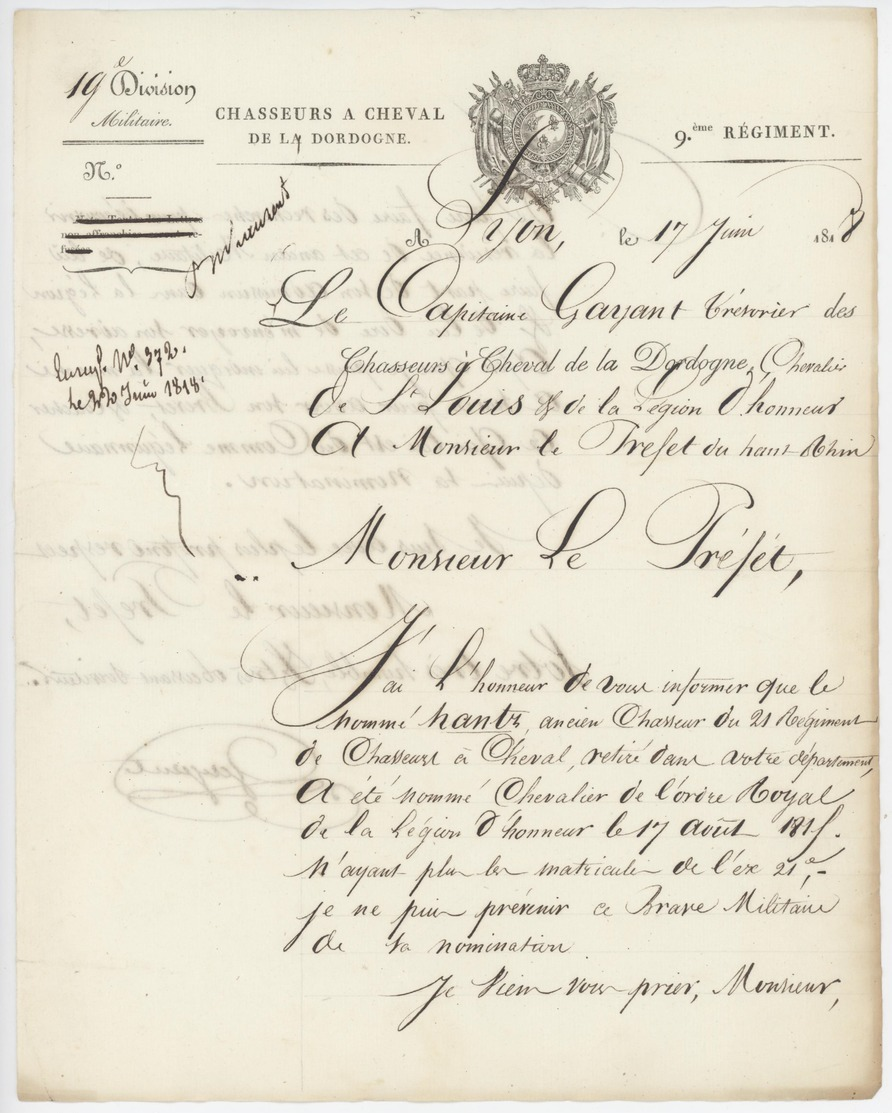 19e Division
Militaire.
CHASSEURS A CHEVAL
DE LA DORDOGNE.
9.ème RÉGIMENT.
N.o
non affranchies seront re-
fusées
A Lyon, le 17 Juin 1818
Le Capitaine Gayant trésorier des
Chasseurs à Cheval de la Dordogne, Chevalier
de St Louis & de la Légion d'honneur
A Monsieur le Prefet du haut Rhin
Enreg. No. 372.
Le 22 Juin 1818.
Monsieur Le Préfét,
J'ai L'honneur de vous informer que le
nommé hantz, ancien Chasseur du 21 Régiment
de Chasseurs à Cheval, retiré dans votre département,
A été nommé Chevalier de l'ordre Royal
de la Légion d'honneur le 17 août 1815.
N'ayant plus les matricules de l'ex 21e,-
je ne puis prévenir ce Brave Militaire
de sa nomination
Je Viens vous prier, Monsieur,